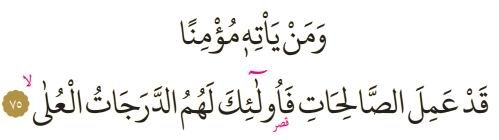 وَمَنْ يَأْتِهٖ مُؤْمِنًا
قَدْ عَمِلَ الصَّالِحَاتِ فَاُولٰٓئِكَ لَهُمُ الدَّرَجَاتُ الْعُلٰىۙ ٧٥
قصر